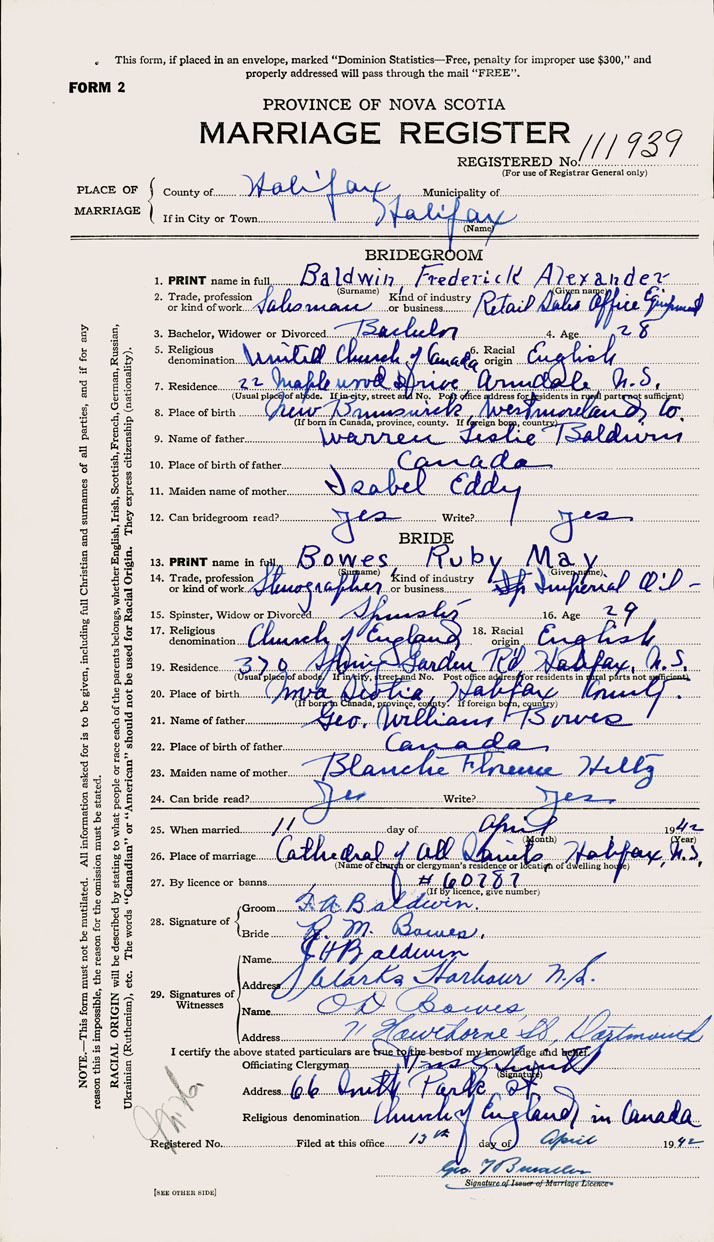 This form, if placed in an envelope, marked "Dominion Statistics—Free, penalty for improper use $300," and
properly addressed will pass through the mail "FREE".
FORM 2
PROVINCE OF NOVA SCOTIA
MARRIAGE REGISTER
REGISTERED No. 111939
(For use of Registrar General only)
PLACE OF MARRIAGE
County of Halifax Municipality of
If in City or Town Halifax
(Name)
BRIDEGROOM
1. PRINT name in full Baldwin, Frederick Alexander
(Surname) (Given name)
2. Trade, profession or kind of work Salesman Kind of industry or business Retail Sales Office Equipment
3. Bachelor, Widower or Divorced Bachelor 4. Age 28
5. Religious denomination United Church of Canada 6. Racial origin English
7. Residence 22 Maplewood Drive Armdale N.S.
(Usual place of abode. If in city, street and No. Post office address for residents in rural parts not sufficient)
8. Place of birth New Brunswick, Westmoreland Co.
(If born in Canada, province, county. If foreign born, country)
9. Name of father Warren Leslie Baldwin
10. Place of birth of father Canada
11. Maiden name of mother Isabel Eddy
12. Can bridegroom read? Yes Write? Yes
BRIDE
13. PRINT name in full Bowes, Ruby May
(Surname) (Given name)
14. Trade, profession or kind of work Stenographer Kind of industry or business Imperial Oil
15. Spinster, Widow or Divorced Spinster 16. Age 29
17. Religious denomination Church of England 18. Racial origin English
19. Residence 370 Spring Garden R'd Halifax, N.S.
(Usual place of abode. If in city, street and No. Post office address for residents in rural parts not sufficient)
20. Place of birth Nova Scotia, Halifax County.
(If born in Canada, province, county. If foreign born, country)
21. Name of father Geo. William Bowes
22. Place of birth of father Canada
23. Maiden name of mother Blanche Florence Hiltz
24. Can bride read? Yes Write? Yes
25. When married 11 day of April 1942
(Month) (Year)
26. Place of marriage Cathedral of All Saints Halifax, N.S.
(Name of church or clergyman's residence or location of dwelling house)
27. By licence or banns # 60787
(If by licence, give number)
28. Signature of
Groom F. A. Baldwin.
Bride R. M. Bowes.
29. Signatures of Witnesses
Name Baldwin
Address Clarks Harbour N.S.
Name O D Bowes
Address Hawthorne St, Dartmouth
I certify the above stated particulars are true to the best of my knowledge and belief.
Officiating Clergyman
(Signature)
Address 66 South Park St
Religious denomination Church of England in Canada
Registered No. Filed at this office 13th day of April 1942
Geo.
Signature of Issuer of Marriage Licence
[SEE OTHER SIDE]
NOTE.—This form must not be mutilated. All information asked for is to be given, including full Christian and surnames of all parties, and if for any
reason this is impossible, the reason for the omission must be stated.
RACIAL ORIGIN will be described by stating to what people or race each of the parents belongs, whether English, Irish, Scottish, French, German, Russian,
Ukrainian (Ruthenian), etc. The words "Canadian" or "American" should not be used for Racial Origin. They express citizenship (nationality).